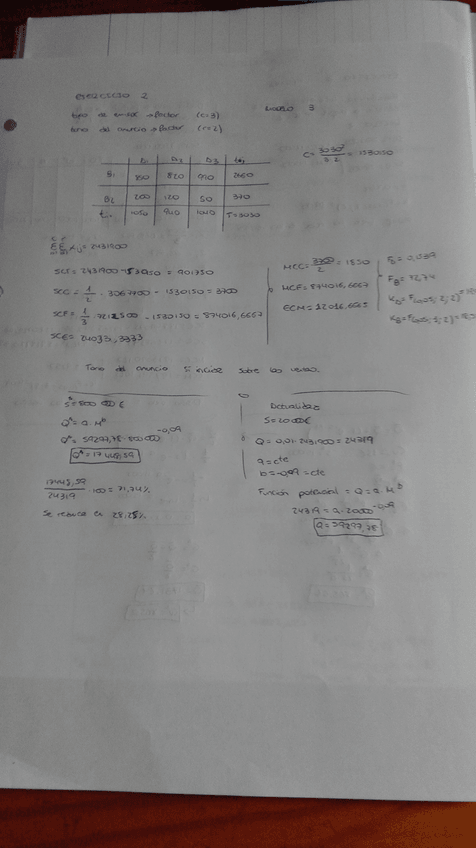 ejercicio 2
modelo 3
tono de emisor → factor (c=3)
tono del anuncio → factor (r=2)
C = 3030² / 3·2 = 1530150
B1 850 820 990 2660
B2 200 120 50 370
1050 940 1040 T=3030
= 2431900
SCT = 2431900 - 1530150 = 901750
SCC = 1/2 · 3067700 - 1530150 = 3700
SCF = 1/3 · 7212500 - 1530150 = 874016,6667
SCE = 24033,3333
MCC = 3700/2 = 1850
MCF = 874016,6667
ECM = 12016,6665
FB = 72,74
Tono del anuncio sí incide sobre las ventas.
S = 800 000 €
Q^ = a · M^b
Q^ = 59297,78 · 800 000^-0,09
Q^ = 17448,59
17448,59 / 24319 · 100 = 71,74%
Se reduce en 28,25%
Actualidad
S = 20 000 €
Q = 0,01 · 2431900 = 24319
a = cte
b = -0,09 = cte
Función potencial = Q = a · M^b
24319 = a · 20000^-0,09
a = 59297,78